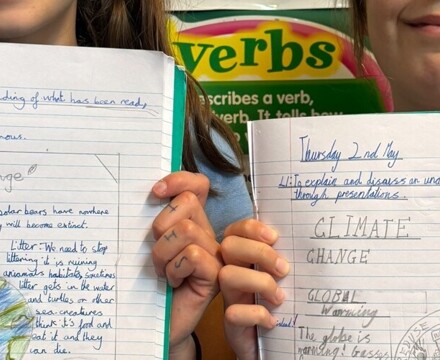 verbs
escribes a verb,
verb. It tells how
ding of what has been read,
nous.
nge
olar bears have nowhere
will become extinct.
Litter - We need to stop
littering it is ruining
animals habitats, sometimes
litter gets in the water
and turtles or other
sea creatures
think it's food and
eat it and they
can die.
Thursday 2nd May
LI: To explain and discuss an und
through presentations.
CLIMATE
CHANGE
GLOBAL
Warming
The globe is
warming